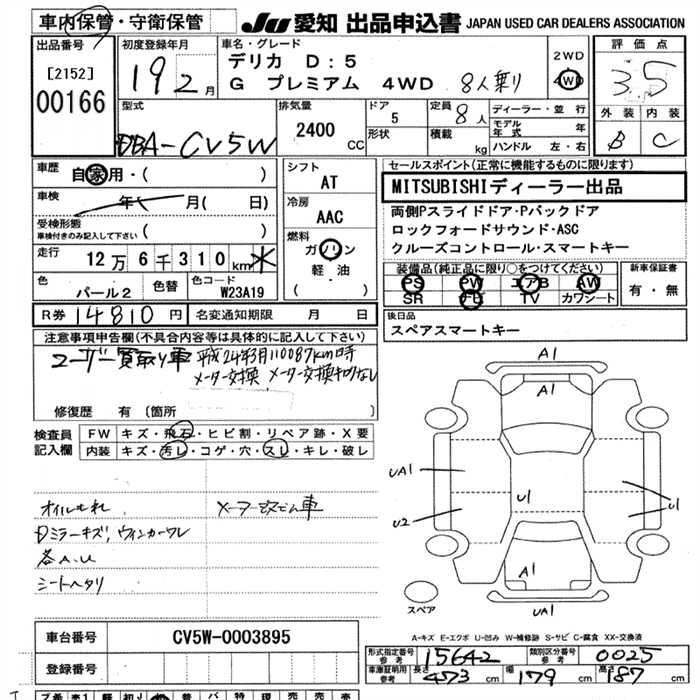 車内保管・守衛保管
JU 愛知 出品申込書 JAPAN USED CAR DEALERS ASSOCIATION
出品番号
[2152]
00166
初度登録年月
19 2 月
車名・グレード
デリカ D:5
G プレミアム 4WD 8人乗り
2WD
4WD
評価点
3.5
外装 内装
B C
型式
DBA-CV5W
排気量
2400 CC
ドア
5
形状
定員
8 人
積載
kg
ディーラー・並行
モデル年式 年
ハンドル 左・右
車歴
自家用・( )
車検
年 月( 日)
受検形態
車検付きのみ記入して下さい ( )
走行
12万6千310km *
色
パール2
色替
色コード
W23A19
シフト
AT
冷房
AAC
燃料
ガソリン
軽・油
( )
セールスポイント(正常に機能するものに限ります)
MITSUBISHIディーラー出品
両側Pスライドドア・Pバックドア
ロックフォードサウンド・ASC
クルーズコントロール・スマートキー
装備品(純正品に限り○をつけてください)
PS PW エアB AW
SR ナビ TV カワシート
新車保証書
有・無
後日品
スペアスマートキー
R券 14810円
名変通知期限 月 日
注意事項申告欄(不具合内容等は具体的に記入して下さい)
ユーザー買取り車 平成24年3月110087km時
メーター交換 メーター交換キロクなし
修復歴 有 (箇所 )
検査員記入欄
FW キズ・飛石・ヒビ割・リペア跡・X要
内装 キズ・汚レ・コゲ・穴・スレ・キレ・破レ
オイルもれ
メーター改ざん車
Dミラーキズ, ウィンカーワレ
各A.U
シートヘタリ
A1
A1
UA1
U2
U1
U1
A1
UA1
スペア
A-キズ E-エクボ U-凹み W-補修跡 S-サビ C-腐食 XX-交換済
車台番号 CV5W-0003895
登録番号
形式指定番号 参考 15642
類別区分番号 参考 0025
車庫証明用 参考 長さ 473 cm 幅 179 cm 高さ 187 cm